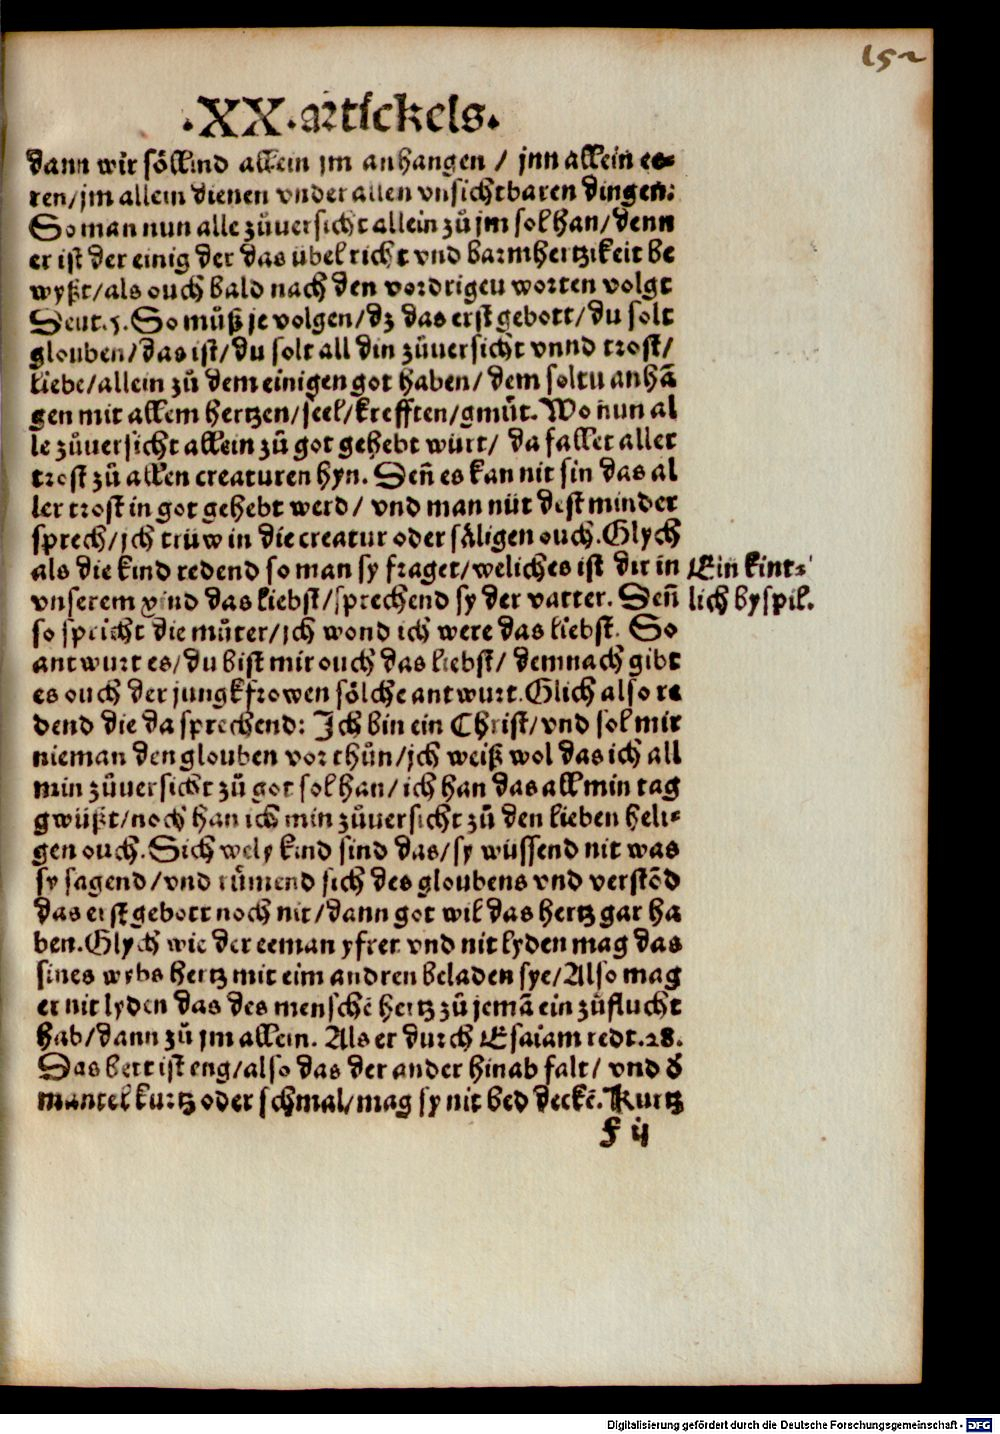 152
.XX.artickels.
dann wir söllind allein jm anhangen / jnn allein ee⸗
ren/jm allein dienen vnder allen vnsichtbaren dingen:
So man nun alle zůuersicht allein zů jm sol han/denn
er ist der einig der das übel richt vnd barmhertzikeit be
wyßt/als ouch bald nach den vordrigen worten volgt
Deut.5.So můß je volgen/dz das erst gebott/du solt
glouben/das ist/du solt all din zůuersicht vnnd trost/
liebe/allein zů dem einigen got haben/dem soltu anhā
gen mit allem hertzen/seel/krefften/gmůt.Wo nun al
le zůuersicht allein zů got gehebt würt/ da fallet aller
trost zů allen creaturen hyn. Deñ es kan nit sin das al
ler trost in got gehebt werd/ vnd man nüt dest minder
sprech/jch trüw in die creatur oder säligen ouch.Glych
als die kind redend so man sy fraget/weliches ist dir in
vnserem xind das liebst/sprechend sy der vatter. Deñ
so spricht die můter/jch wond ich were das liebst. So
antwurt es/du bist mir ouch das liebst/ demnach gibt
es ouch der jungkfrowen sölche antwurt.Glich also re
dend die da sprechend: Ich bin ein Christ/vnd sol mir
nieman den glouben vor thůn/jch weiß wol das ich all
min zůuersicht zů got sol han/ich han das all min tag
gwüßt/noch han ich min zůuersicht zů den lieben heli⸗
gen ouch.Sich wely kind sind das/sy wüssend nit was
sy sagend/vnd růmend sich des gloubens vnd verstōd
das erst gebott noch nit/dann got wil das hertz gar ha
ben.Glych wie der eeman yfret vnd nit lyden mag das
sines wybs hertz mit eim andren beladen sye/Also mag
er nit lyden das des menschē hertz zů jemā ein zůflucht
hab/dann zů jm allein. Als er durch Esaiam redt.28.
Das bett ist eng/also das der ander hinab falt/ vnd d̕
mantel kurtz oder schmal/mag sy nit bed deckē.Kurtz
f ij
Ein kint⸗
lich byspil.
Digitalisierung gefördert durch die Deutsche Forschungsgemeinschaft - DFG